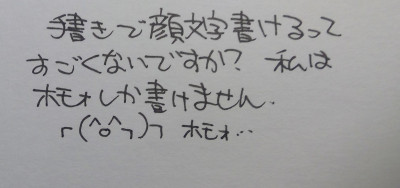 手書きで顔文字書けるって
すごくないですか? 私は
ホモォしか書けません.
┌(^o^┐)┐ ホモォ…